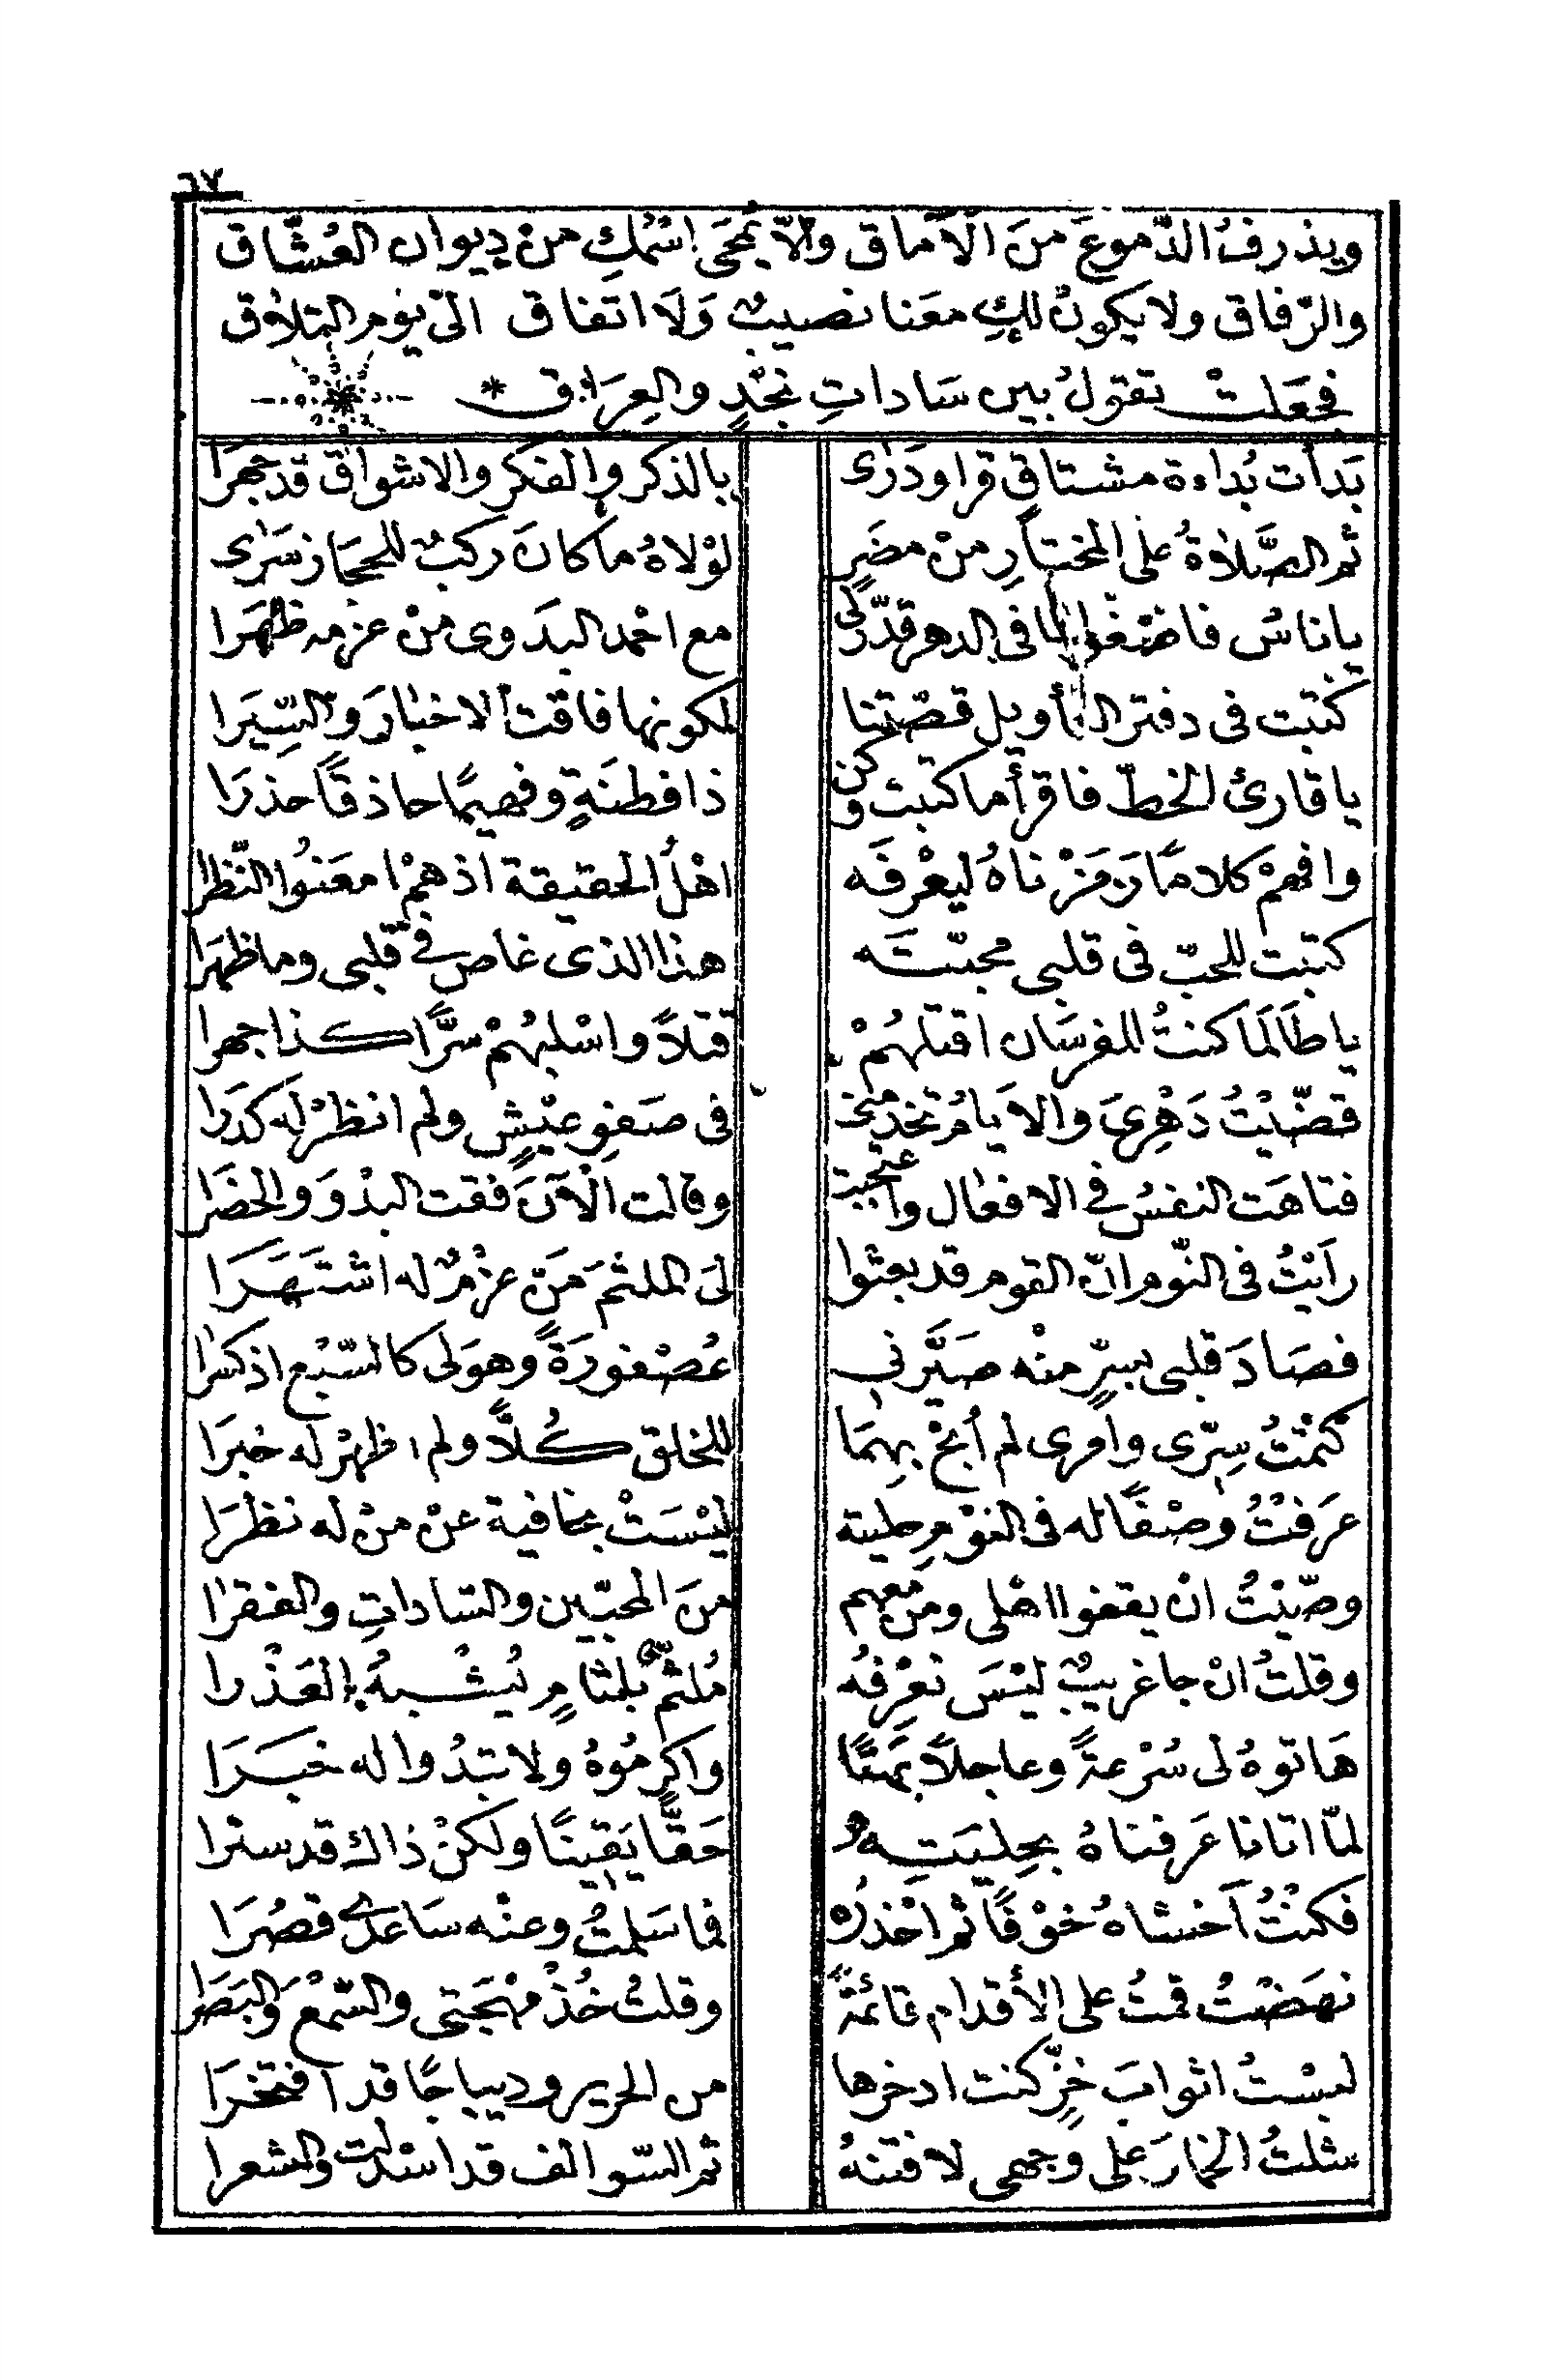 ٦٧
ويذرفُ الدّموعَ منَ الآماق والاّ يُمحَى اسْمُكِ منْ ديوان العُشّاق
والرّفاق ولا يكونُ لكِ معَنا نصيبٌ وَلَا اتفاق الى يوْم التلاق
فجعَلتْ تقولُ بين سَاداتِ نجْدٍ والعِرَاق *
بَدأت بُداءة مشتاقٍ قرا ودَرٰى بالذكر والفكر والاشواق قد جهرَا
ثم الصَّلاةُ على المختارِ منْ مضَرٍ لوْلاهُ ما كانَ ركبٌ للحجاز سَرٰى
يا ناسُ فاصْغَوا لما فى الدهر قدّر لى مع احْمد البدَوى منْ عزمه ظهَرا
كتبت فى دفتر التأويل قصّتنا لكونها فاقت الاخبارَ والسِّيَرا
يا قارئ الخطّ فاقرأ ما كتبت وكن ذا فطنَةٍ وفهيمًا حاذقًا حذرَا
وافهمْ كلامًا رَمَزْناهُ ليعْرفَه اهْلُ الحقيقة اذ همْ امعَنُوا النّظرا
كتبت للحبّ فى قلبى محبّتَه هذا الذى غاص في قلبى وما ظهرَا
يا طَالَما كنتُ للفرسَان اقتلهُمْ قتلاً واسْلبُهُمْ سرًّا كذا جهرا
قضّيْتُ دَهْرِىَ والايامُ تخدمنى فى صَفوِ عيْشٍ ولم انظرْ له كدَرا
فتاهَت النفسُ في الافعال واعجبت وقالت الآنَ فقت البدْوَ والحضَرا
رَايْتُ فى النّوم انّ القوم قد بعثوا لىَ الملثمَ مَنْ عزْمٌ له اشتَهَرَا
فصَادَ قلبى بسِرٍّ منْه صَيَّرنى عُصْفورَةً وهوَ لى كالسّبُع اذ كسَرا
كتمْتُ سِرّى وامرى لم أبُحْ بهِمَا للخلق كُلاًّ ولم اظهرْ له خبرَا
عَرَفتُ وصْفًا له فى النوْمِ حليته ليْسَتْ بخافية عنْ منْ له نظَرَا
وصّيْتُ انْ يقفوا اهْلى ومن معهم منَ المحبّين والسّاداتِ والفقرٰا
وقلتُ انْ جا غريبٌ ليْسَ نعْرِفهُ مُلثمٌ بلثامٍ يُشْبهُ العَذْرا
هَاتوهُ لى سُرْعةً وعاجلاً بمَتًا واكرِمُوهُ ولا تبْدُوا له خبَرَا
لمّا اتانا عَرفناهُ بحِليَتِهِ حَقًّا يَقِينًا ولكنْ ذاك قد سترا
فكنْتُ اَخشاهُ خوْفًا ثم احْذرُه فما سَلمتُ وعنْه سَاعدى قصُرَا
نهَضتُ قمتُ على الأقدام قائمَةً وقلتُ خُذْ مهْجَتى والسّمْعَ وَالبَصَرا
لبسْتُ اثوابَ خزٍّ كنت ادخرها من الحرير وديباجًا قد افتخَرَا
شلتُ الخمارَ على وجهى لافتنهُ ثم السّوالف قد اسْدلت والشعرا